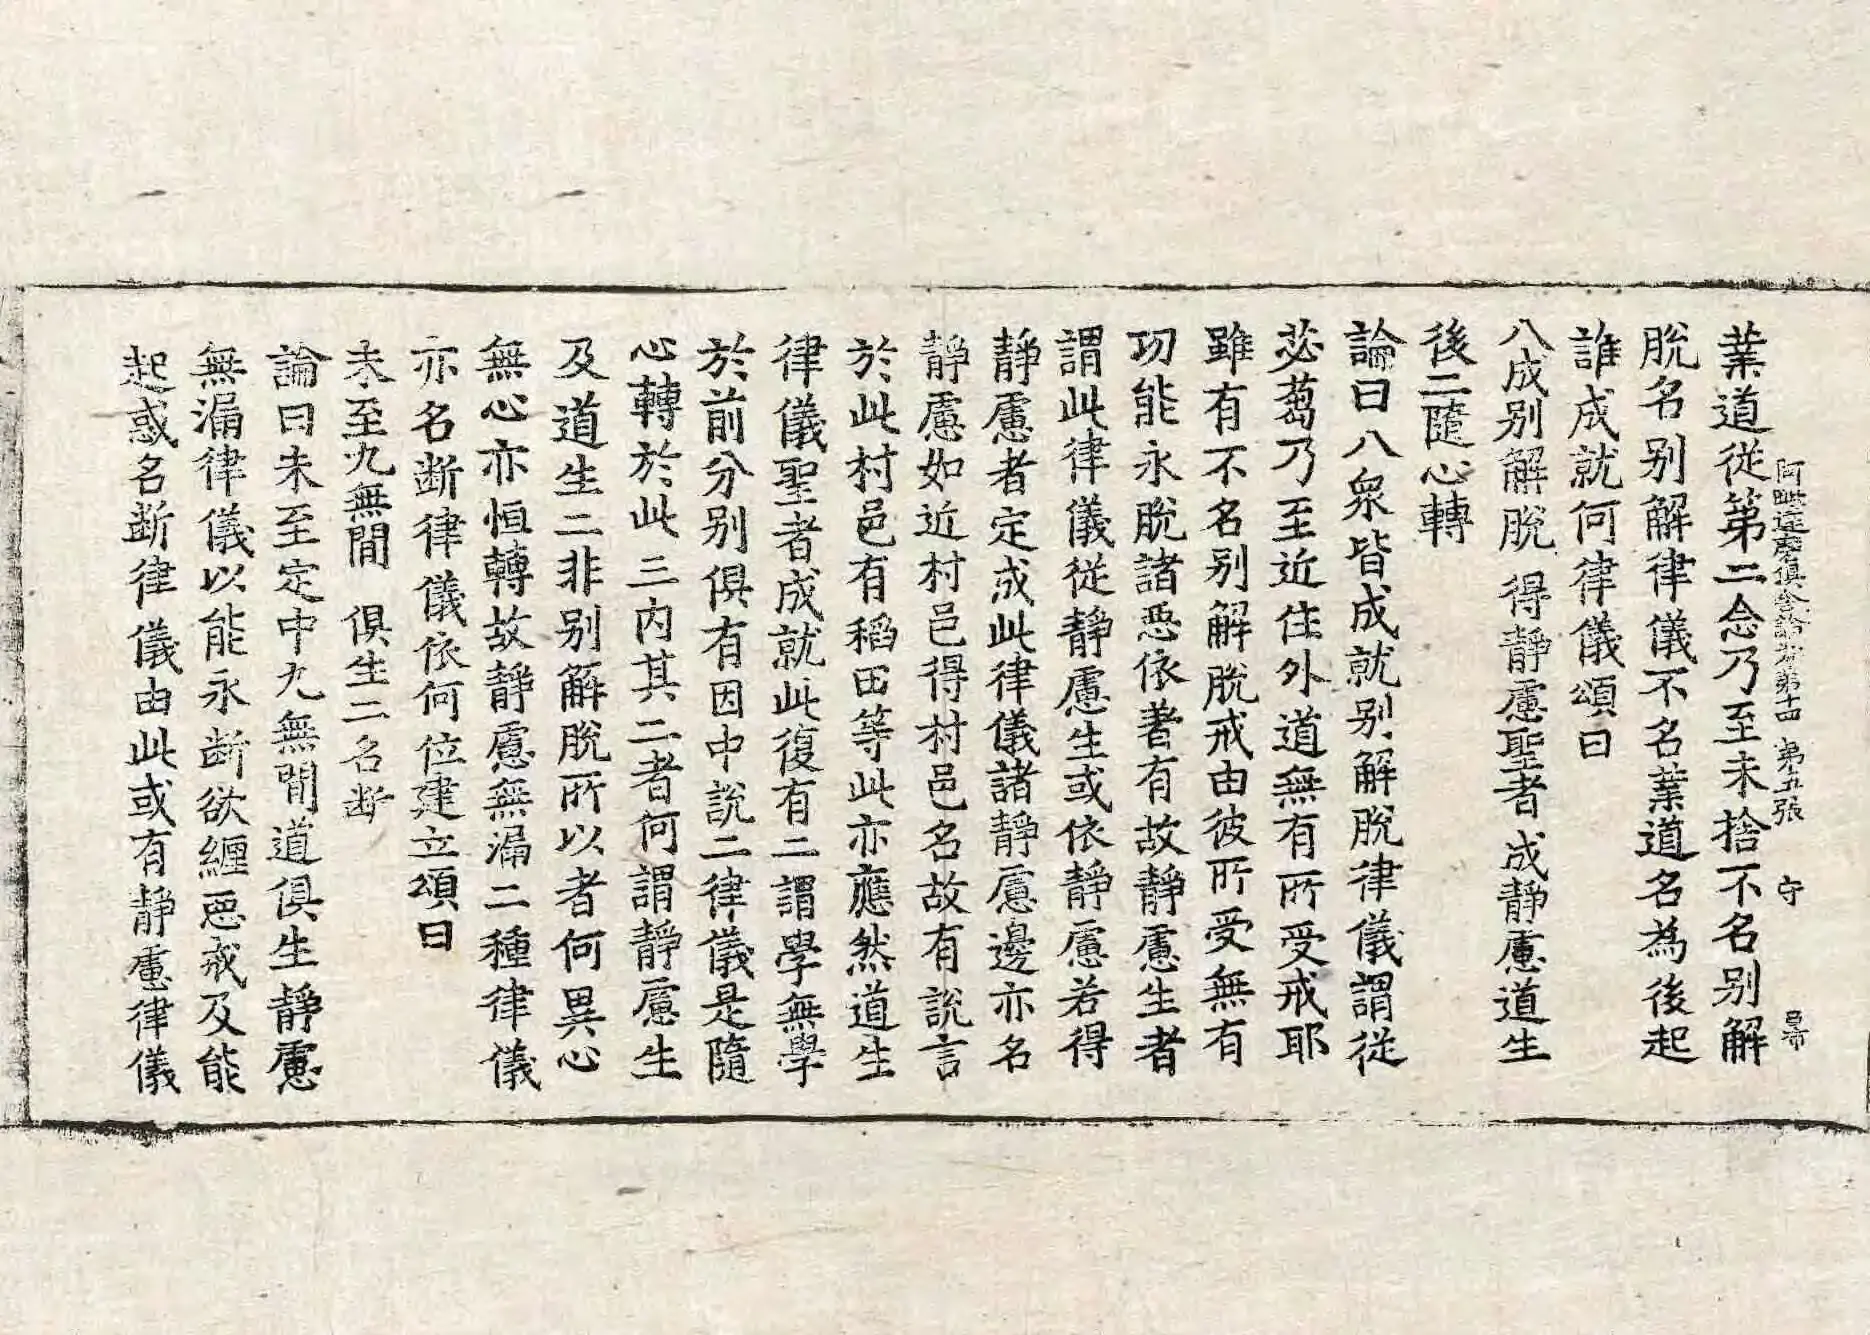 阿毗達磨俱舍論卷第十四 第五張 守
業道從第二念乃至未捨不名别解
脫名别解律儀不名業道名為後起
誰成就何律儀頌曰
八成别解脫 得靜慮聖者 成靜慮道生
後二隨心轉
論曰八衆皆成就别解脫律儀謂從
苾蒭乃至近住外道無有所受戒耶
雖有不名别解脫戒由彼所受無有
功能永脫諸惡依著有故靜慮生者
謂此律儀從靜慮生或依靜慮若得
靜慮者定成此律儀諸靜慮邊亦名
靜慮如近村邑得村邑名故有說言
於此村邑有稻田等此亦應然道生
律儀聖者成就此復有二謂學無學
於前分别俱有因中說二律儀是隨
心轉於此三內其二者何謂靜慮生
及道生二非别解脫所以者何異心
無心亦恒轉故靜慮無漏二種律儀
亦名断律儀依何位建立頌曰
未至九無間 俱生二名断
論曰未至定中九無間道俱生靜慮
無漏律儀以能永断欲纏惡戒及能
起惑名断律儀由此或有靜慮律儀